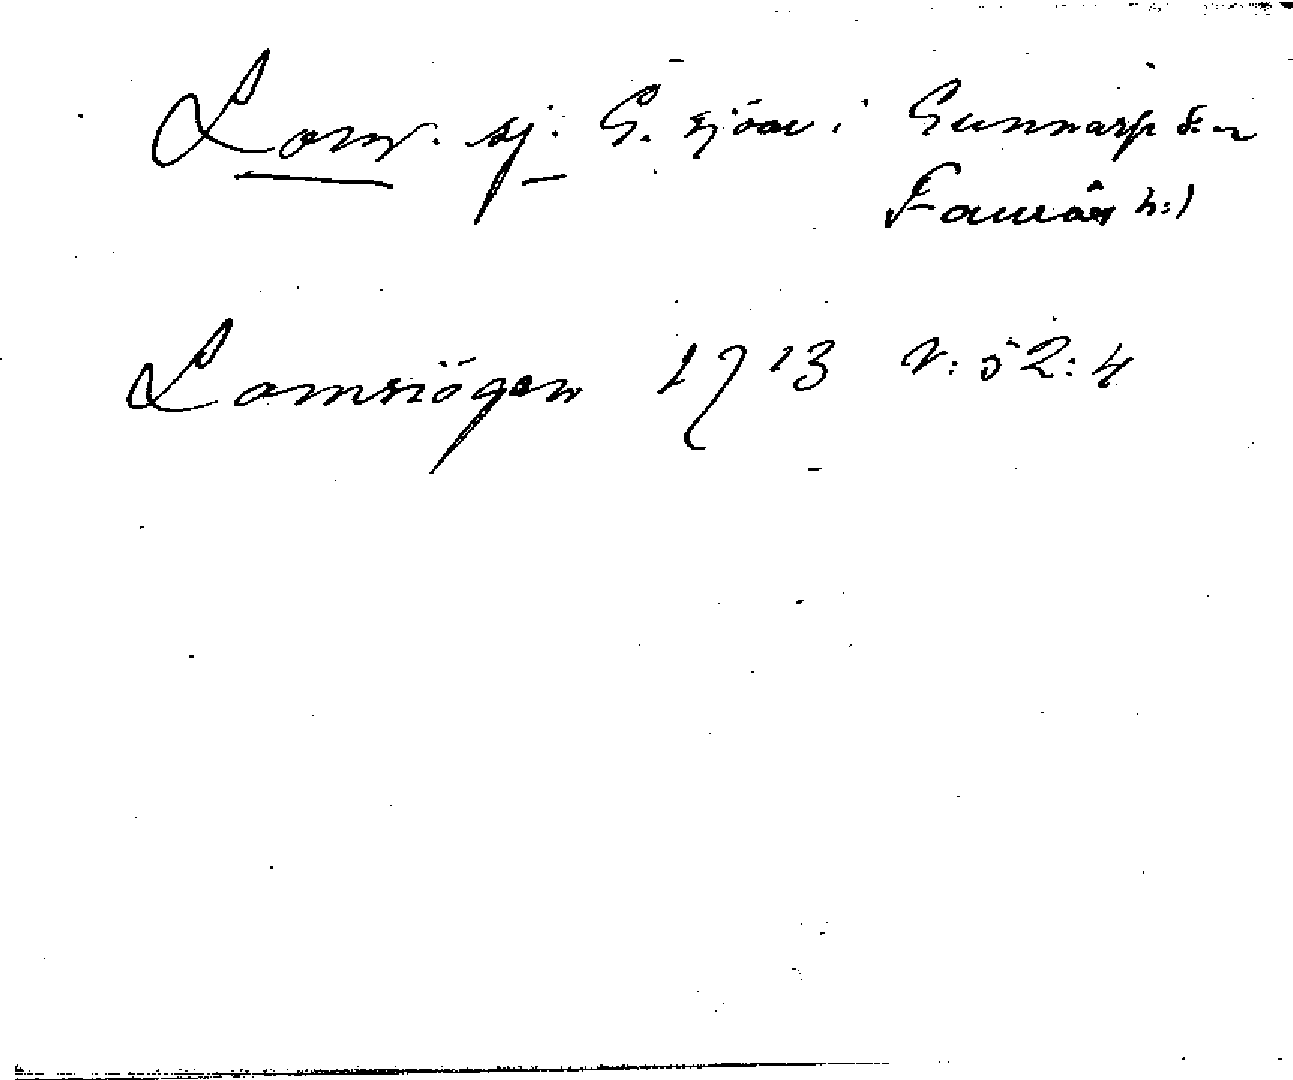 Lom. sj. G. sjöar i Gunnarp s:n
Faurås h:d
Lomsiögen 1713 v: 52: 4